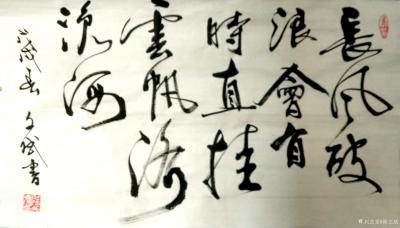 長風破
浪會有
時直挂
雲帆濟
滄海
戊戌春 文斌書